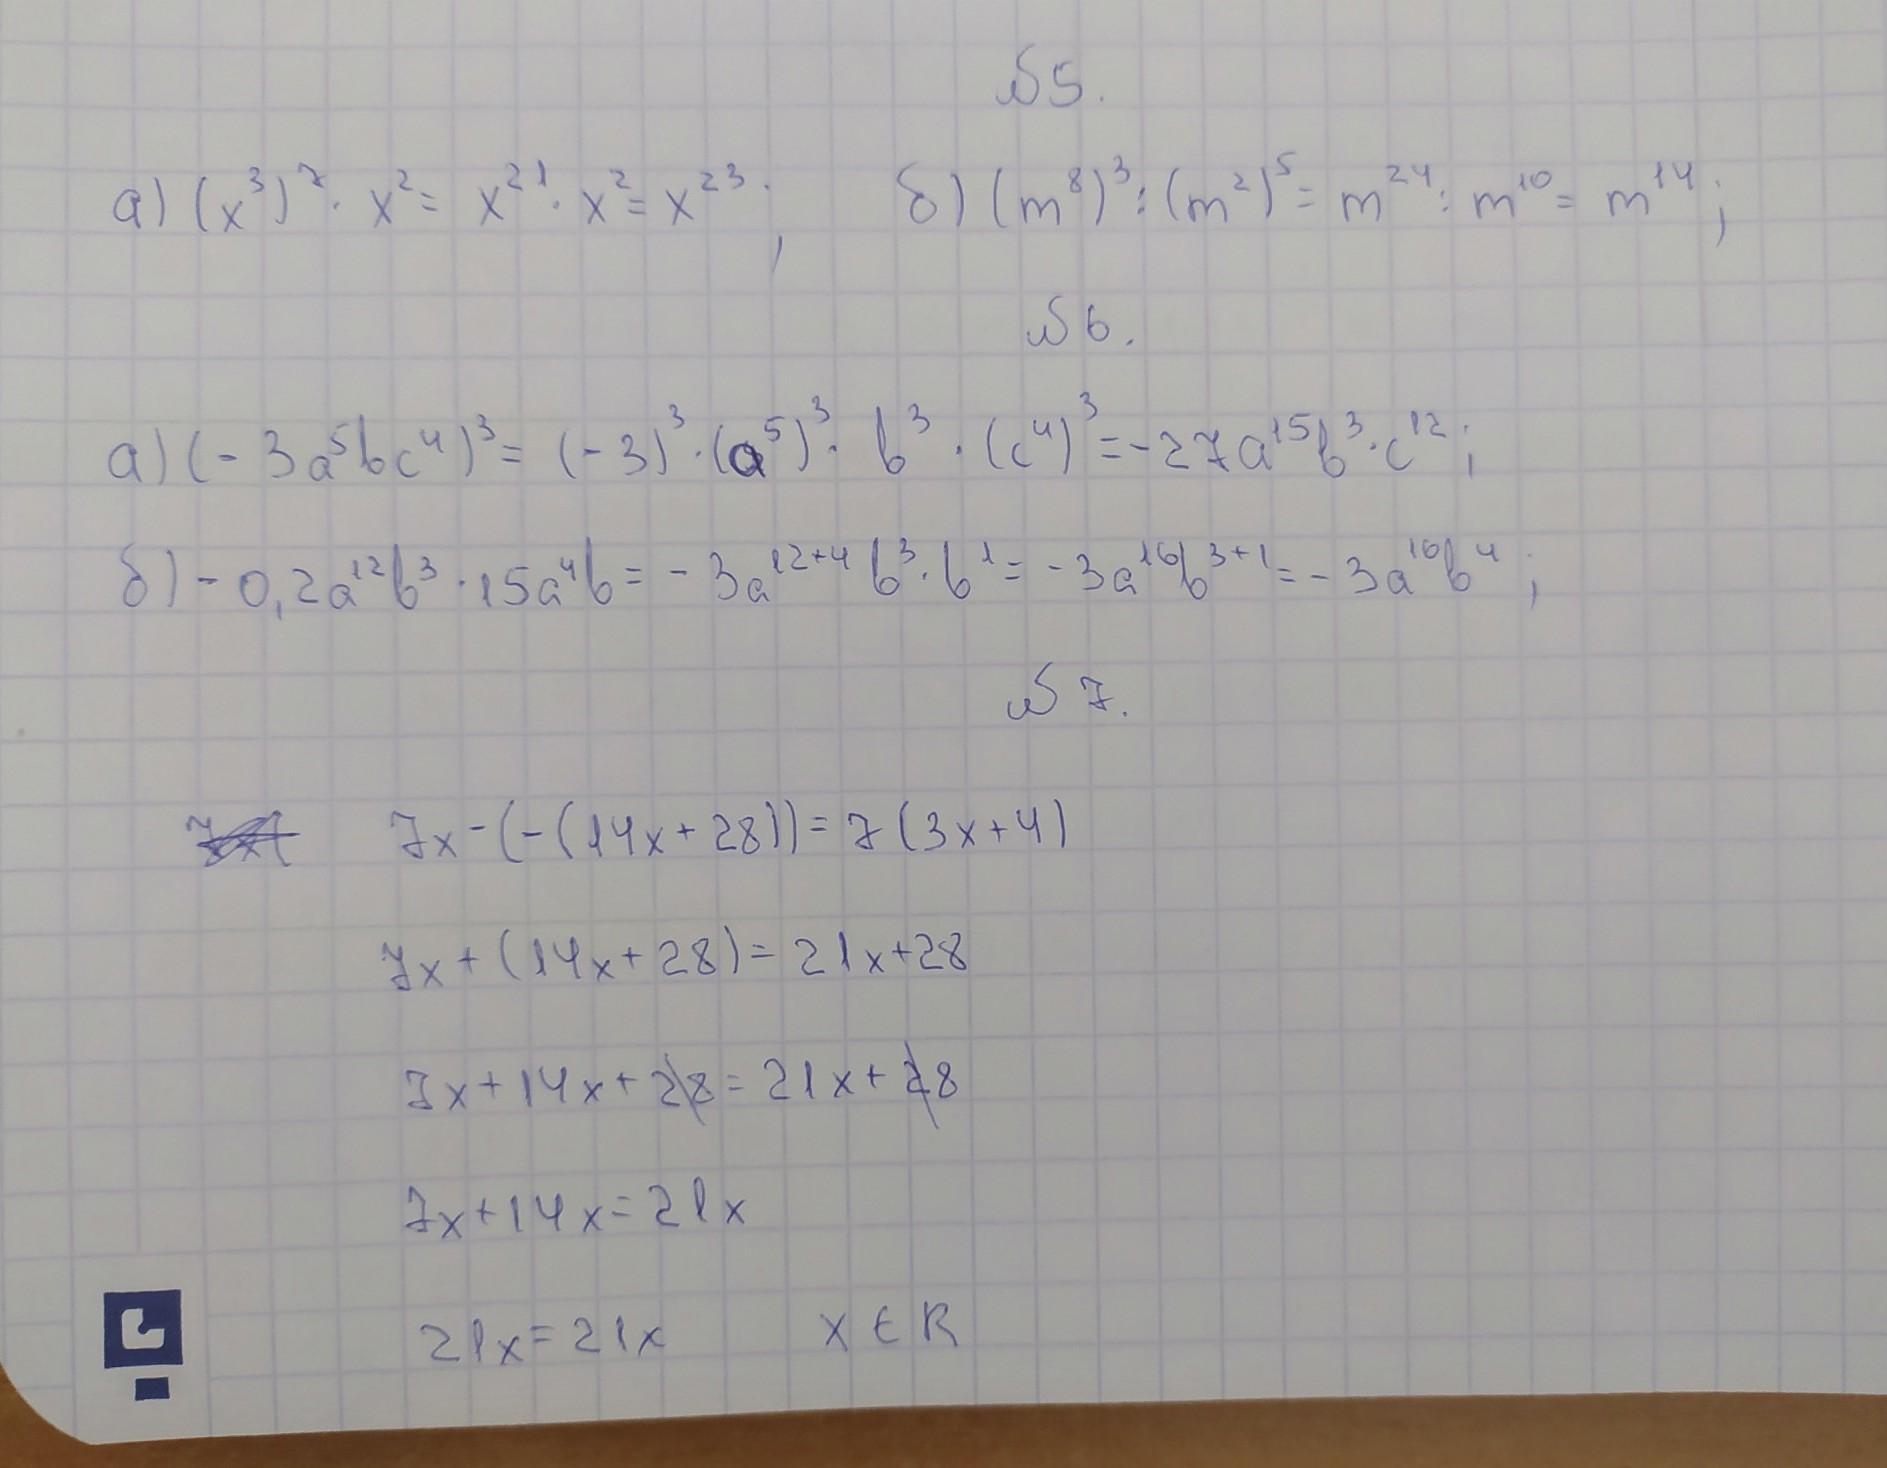 №5.
а) (x³)⁷ · x² = x²¹ · x² = x²³; б) (m⁸)³ : (m²)⁵ = m²⁴ : m¹⁰ = m¹⁴;
№6.
а) (-3a⁵bc⁴)³ = (-3)³ · (a⁵)³ · b³ · (c⁴)³ = -27a¹⁵b³ · c¹²;
б) -0,2a¹²b³ · 15a⁴b = -3a¹²⁺⁴b³ · b¹ = -3a¹⁶b³⁺¹ = -3a¹⁶b⁴;
№7.
7x-(-(14x+28))=7(3x+4)
7x+(14x+28)=21x+28
7x+14x+28=21x+28
7x+14x=21x
21x=21x x∈R